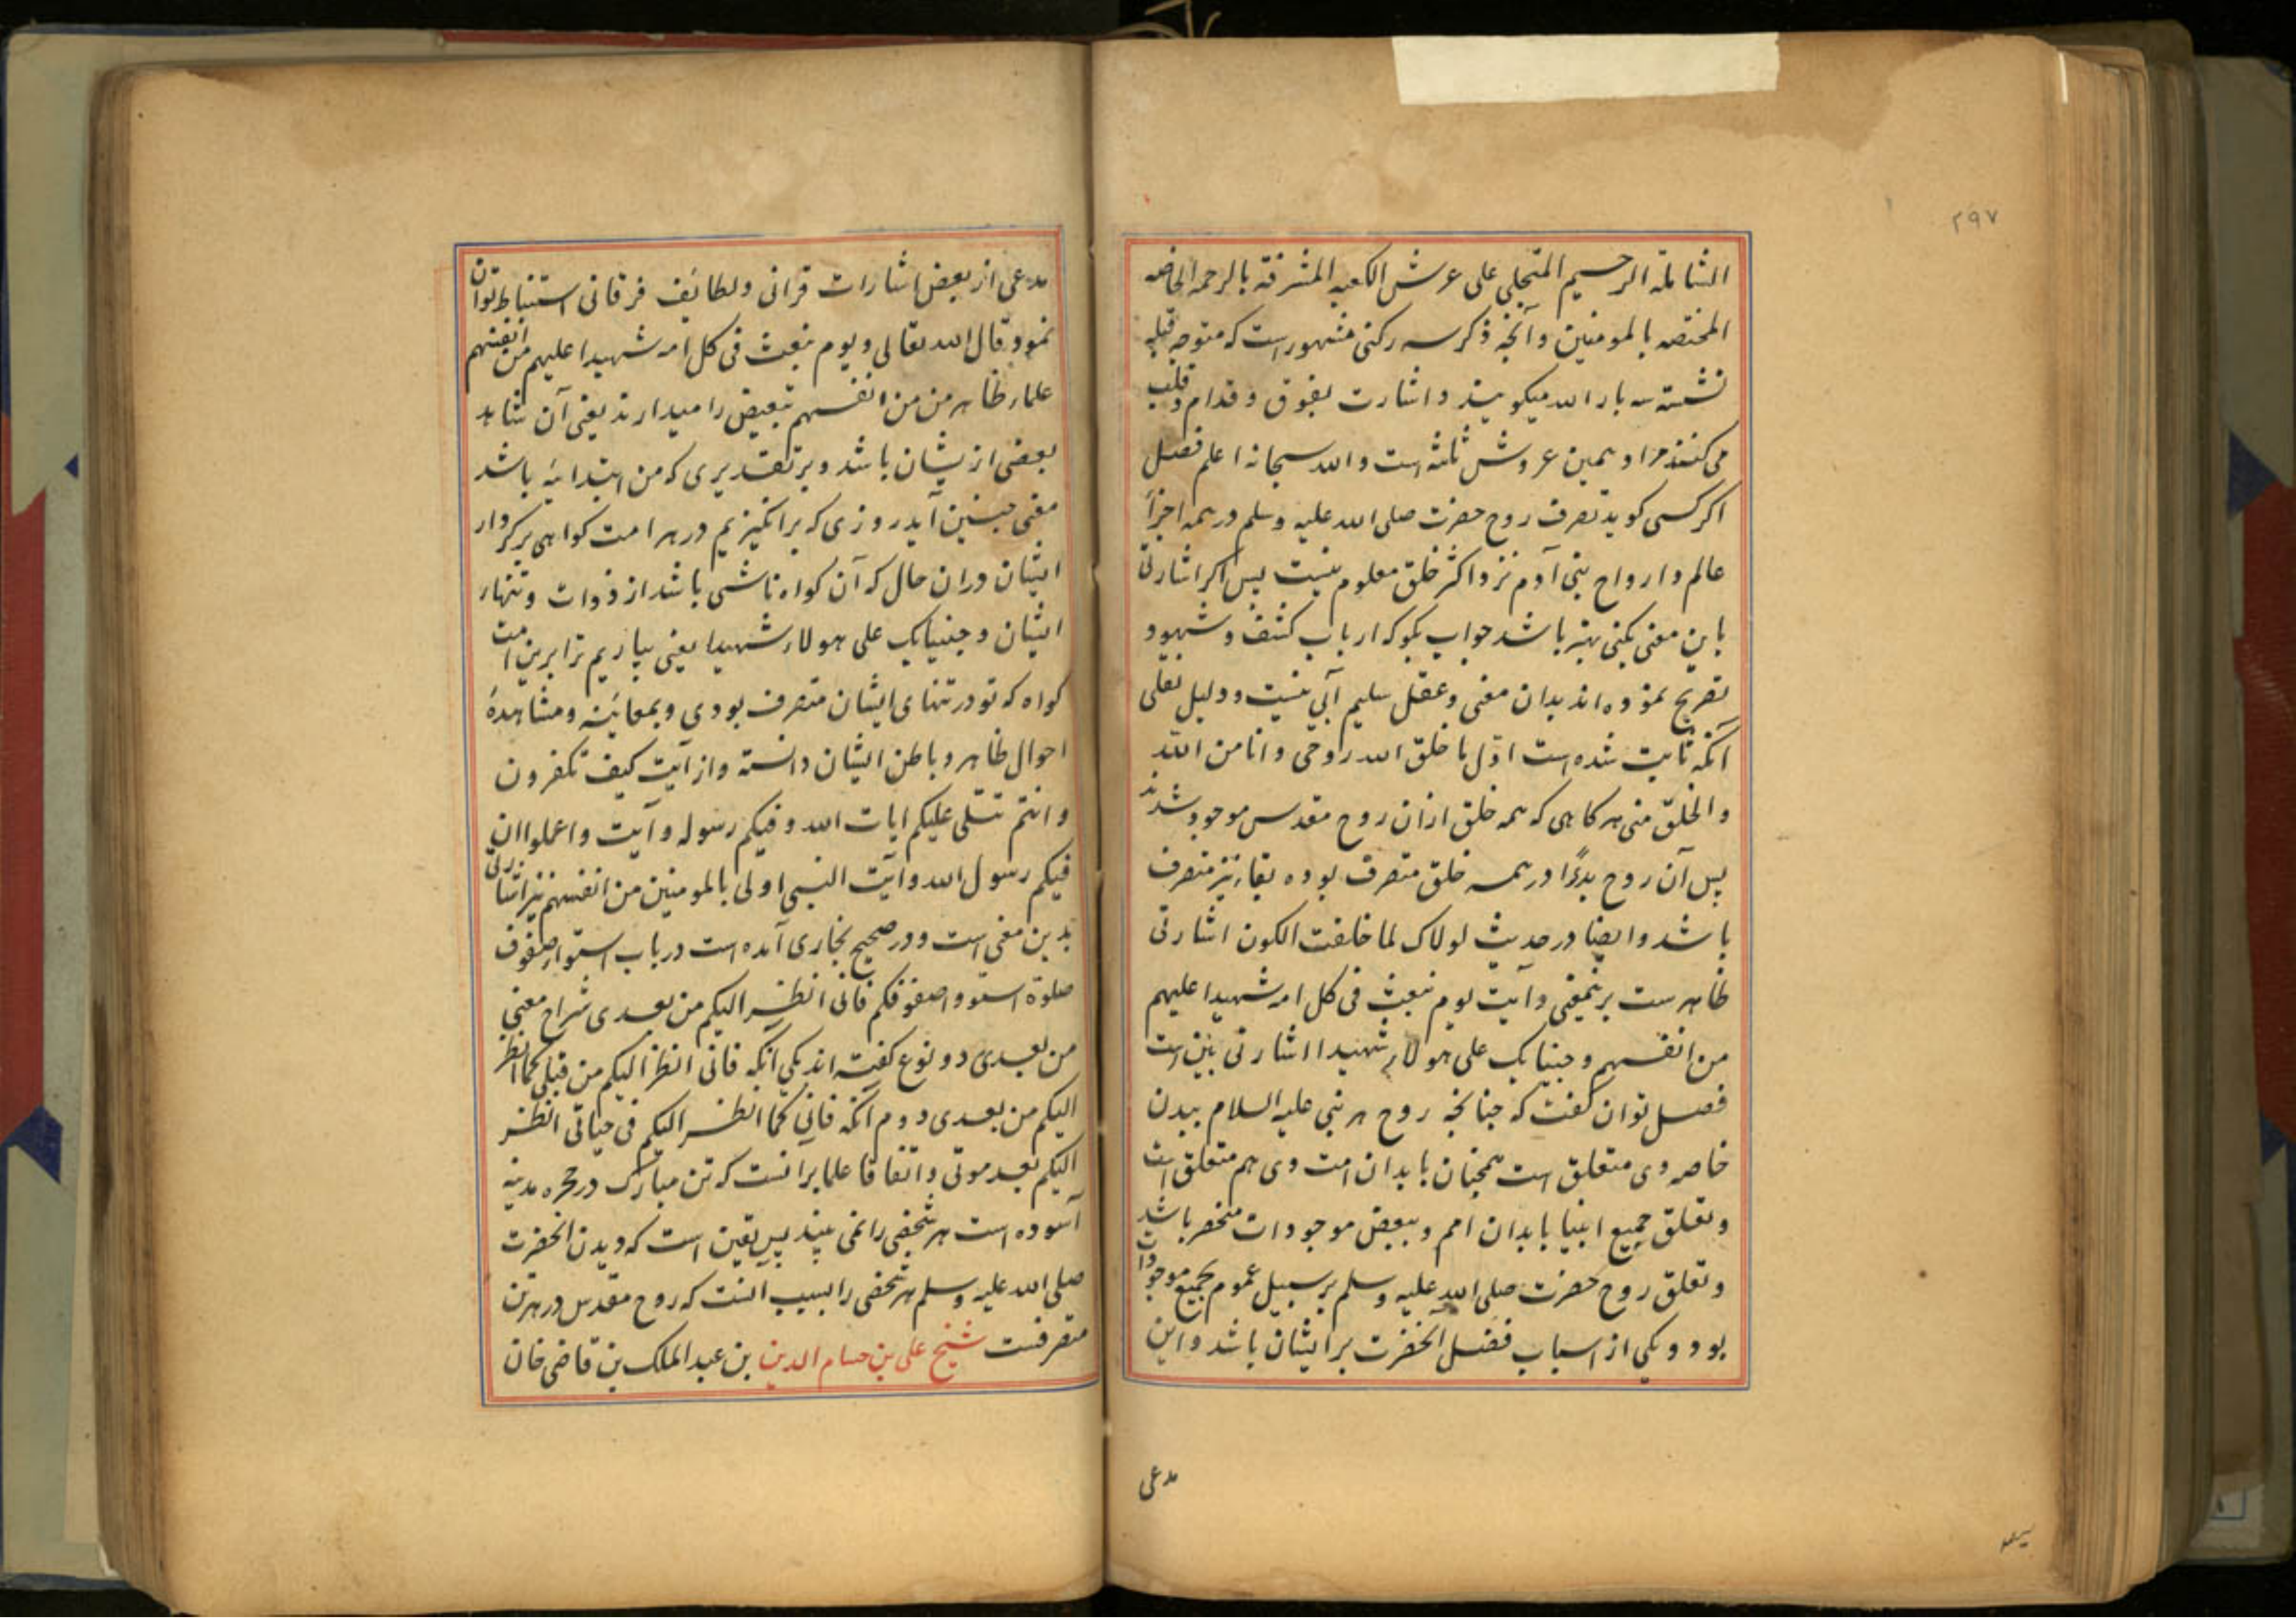 ۲۹۷
الشاملة الرحیم المتجلی علی عرش الکعبه المشرفة بالرحمه الخاصه
المختصه بالمومنین و آنچه ذکر سه رکنی مشهور است که متوجه قبله
نشسته سه بار الله میکویند و اشارت بفوق و قدام و قلب
می کنند مراد همین عروش ثلثه است و الله سبحانه اعلم فصل
اکر کسی کوید تصرف روح حضرت صلی الله علیه وسلم در همه اجزاء
عالم و ارواح بنی آدم نزد اکثر خلق معلوم نیست پس اکر اشارتی
باین معنی بکنی بهتر باشد جواب بکو که ارباب کشف و شهود
تصریح نموده اند بدان معنی و عقل سلیم آبی نیست و دلیل نقلی
آنکه ثابت شده است اوّل ما خلق الله روحی و انا من الله
و الخلق منی هر کاهی که همه خلق ازان روح مقدس موجود شدند
پس آن روح بدءًا در همه خلق متصرف بوده بقاء نیز متصرف
باشد و ایضا در حدیث لولاک لما خلقت الکون اشارتی
ظاهر ست برینمعنی و آیت یوم نبعث فی کل امه شهیدا علیهم
من انفسهم و جینابک علی هولاء شهیدا اشارتی بین است
فصل توان کفت که چنانچه روح هر نبی علیه السلام ببدن
خاصه وی متعلق است همچنان بابدان امت وی هم متعلق است
و تعلق جمیع انبیا بابدان امم و ببعض موجودات منحصر باشد
و تعلق روح حضرت صلی الله علیه وسلم بر سبیل عموم بجمیع موجودات
بود و یکی از اسباب فضل آنحضرت بر ایشان باشد و این
مدعی
مدعی از بعض اشارات قرانی و لطائف فرقانی استنباط توان
نمود قال الله تعالی و یوم نبعث فی کل امه شهیدا علیهم من انفسهم
علماء ظاهر من من انفسهم تبعیض را میدارند یعنی آن شاهد
بعضی ازیشان باشد و بر تقدیری که من ابتدائیه باشد
معنی چنین آید روزی که برانکیزیم در هر امت کواهی بر کردار
ایشان دران حال که آن کواه ناشی باشد از ذوات و تنهاء
ایشان و جینابک علی هولاء شهیدا یعنی بیاریم ترا برین امت
کواه که تو در تنهای ایشان متصرف بودی و بمعاینه و مشاهدۀ
احوال ظاهر و باطن ایشان دانسته و از آیت کیف تکفرون
و انتم تتلی علیکم ایات الله و فیکم رسوله و آیت و اعلموا ان
فیکم رسول الله و آیت النبی اولی بالمومنین من انفسهم نیز اشارتی
بدین معنی است و در صحیح بخاری آمده است در باب استواء صفوف
صلوة استووا صفوفکم فانی انظر الیکم من بعدی شراح معنی
من بعدی دو نوع کفته اند یکی آنکه فانی انظر الیکم من قبلی کما انظر
الیکم من بعدی دوم آنکه فانی کما انظر الیکم فی حیاتی انظر
الیکم بعد موتی و اتفاقا علما برانست که تن مبارک در حجره مدینه
آسوده است هر شخصی را نمی بیند پس یقین است که دیدن آنحضرت
صلی الله علیه وسلم هر شخصی را بسبب آنست که روح مقدس در هر تن
متصرفست شیخ علی بن حسام الدین بن عبد الملک بن قاضی خان